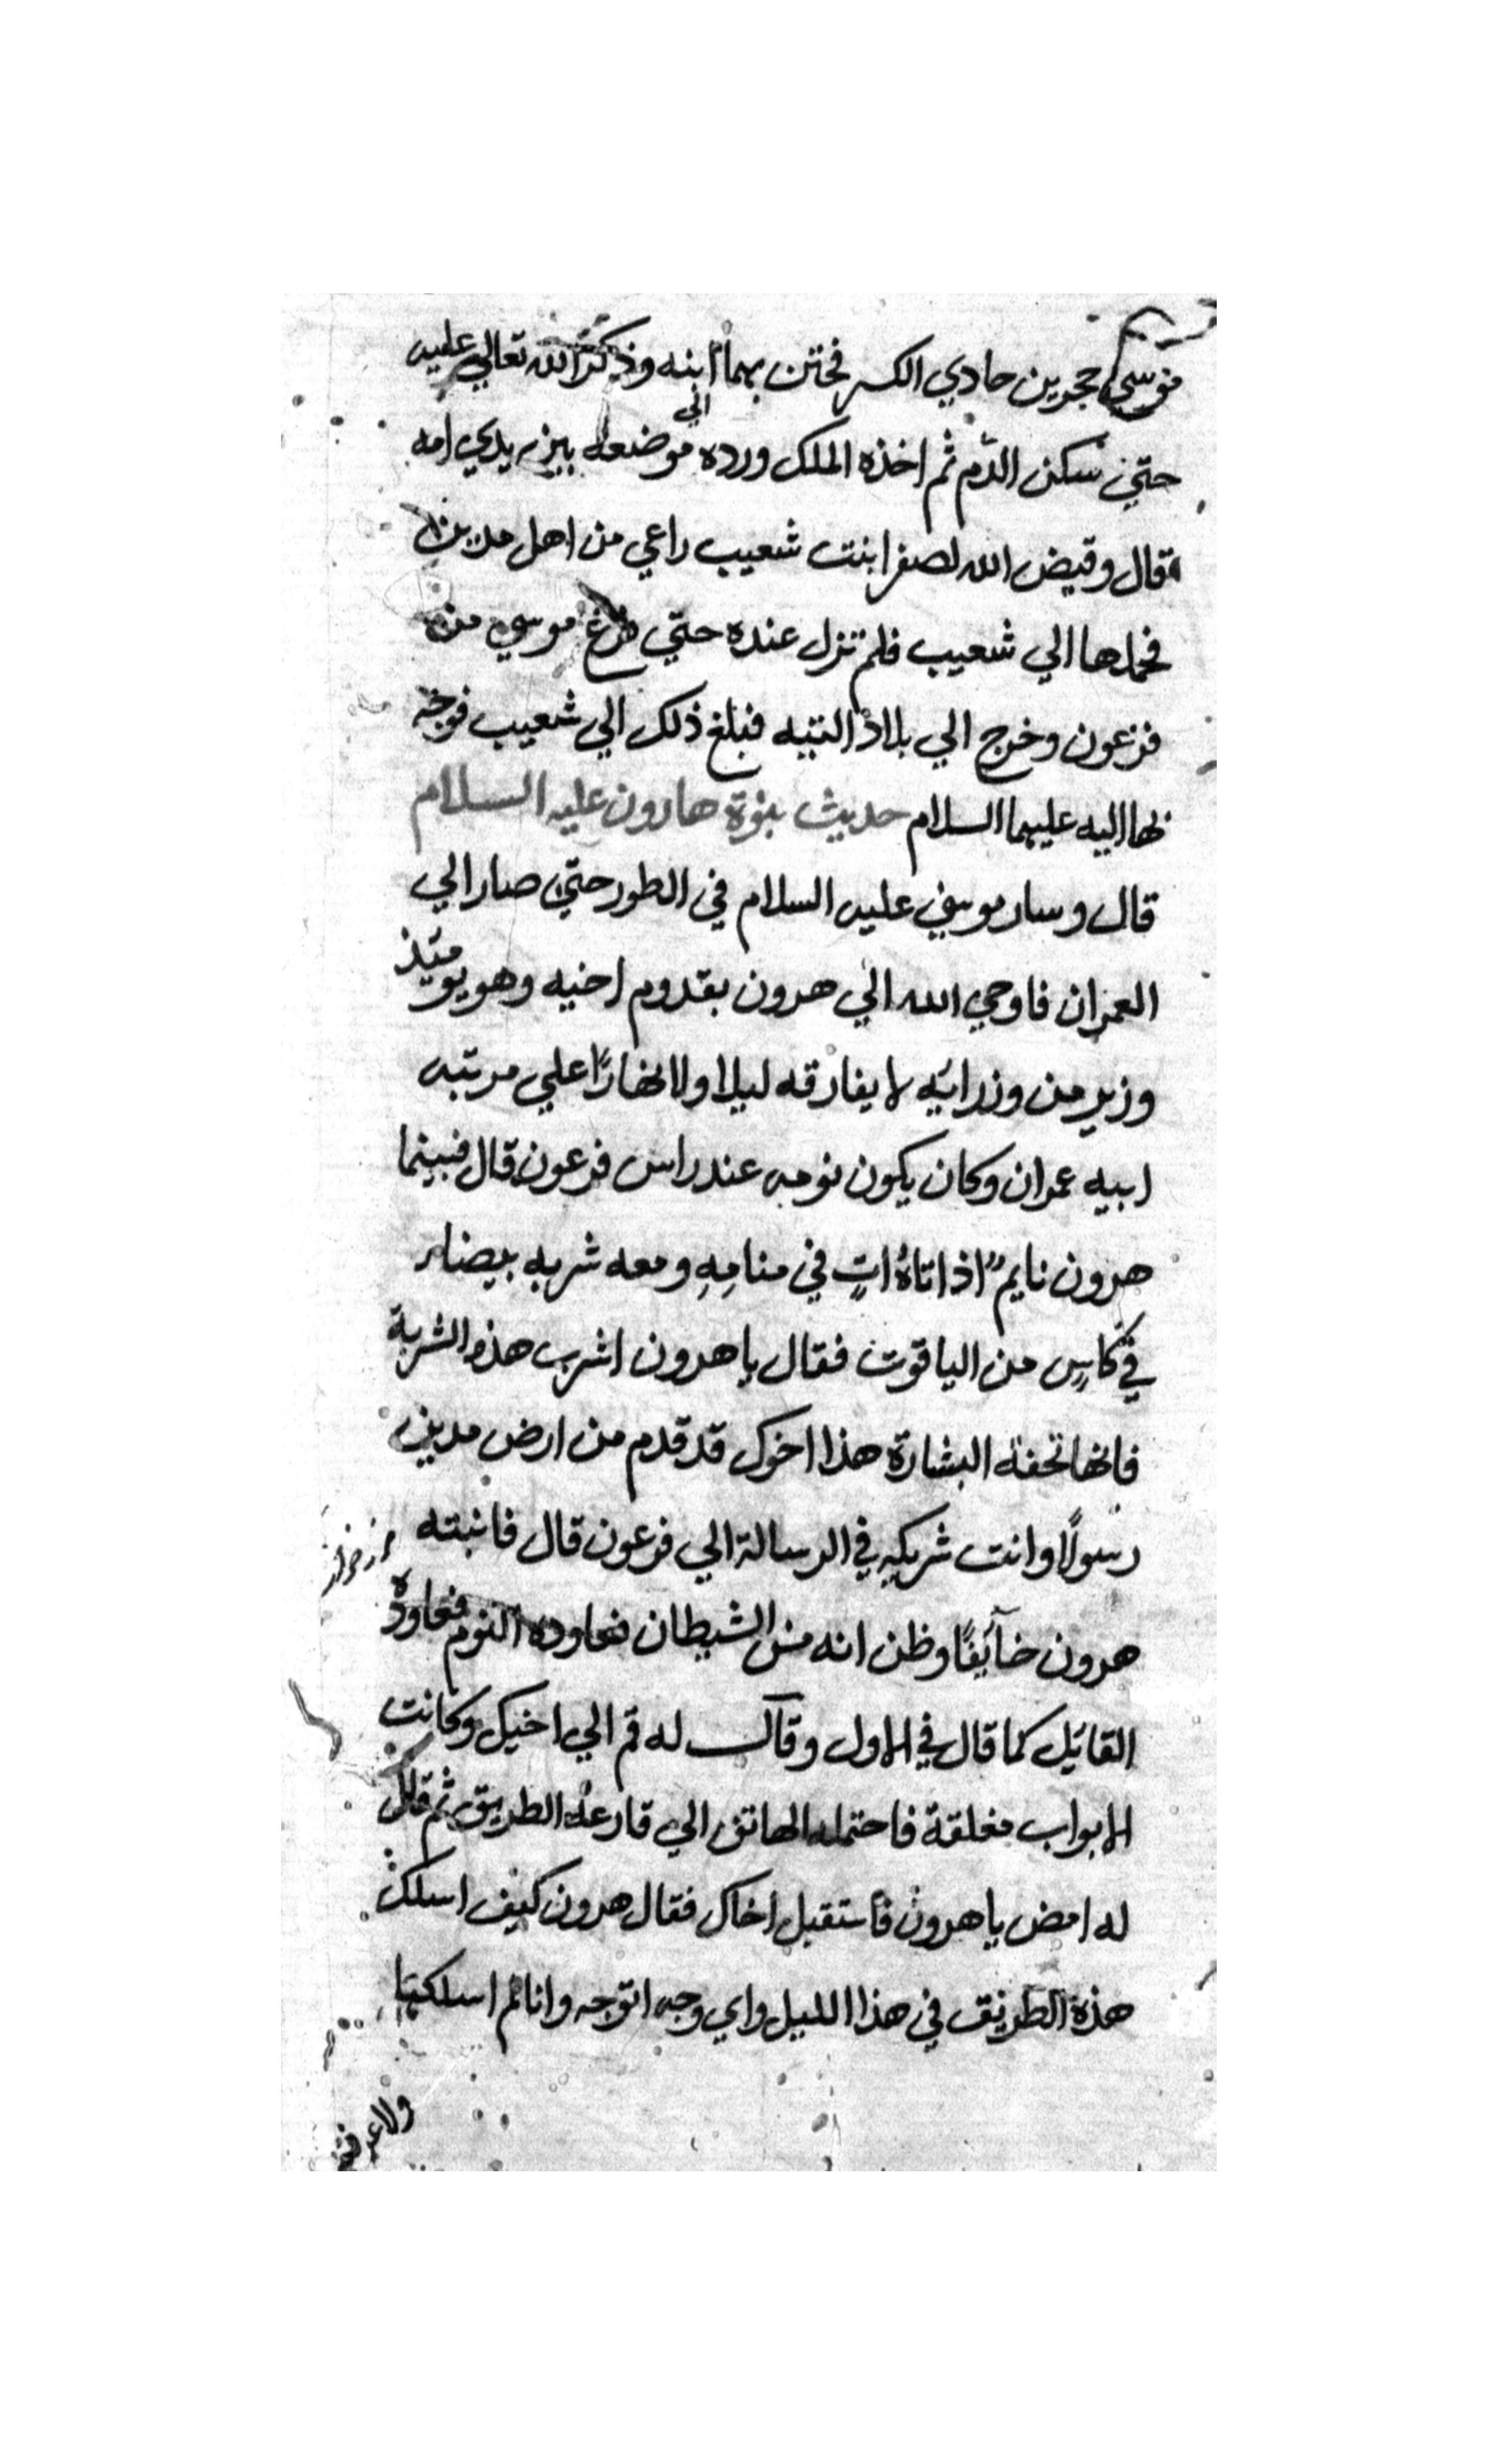 موسى حجرين حادي الكسر فختن بهما ابنه وذكر الله تعالي عليه
حتي سكن الدّم ثم اخذه الملك ورده الي موضعه بين يدي امه
قال وقيض الله لصفرا بنت شعيب راعي من اهل مدين
فحملها الي شعيب فلم تزل عنده حتي فرغ موسي من
فرعون وخرج الي بلاد التيه فبلغ ذلك الي شعيب فوجه
بها اليه عليهما السلام حديث بنوة هارون عليه السلام
قال وسار موسي عليه السلام في الطور حتي صار الي
العمران فاوحي الله الي هرون بقدوم اخيه وهو يومئذ
وزير من وزرائه لا يفارقه ليلا ولا نهارًا علي مرتبه
ابيه عمران وكان يكون نومه عند راس فرعون قال فبينما
هرون نايمٌ اذ اتاهُ اتٍ في منامِهِ ومعه شربه بيضاء
في كاسٍ من الياقوت فقال يا هرون اشرب هذه الشربة
فانها تحفة البشارة هذا اخوك قد قدم من ارض مدين
رسولًا وانت شريكه في الرسالة الي فرعون قال فانبته
هرون خآيفًا وظن انه من الشيطان فعاوده النوم فعاوده
القائل كما قال في الاول وقال له قم الي اخيك وكانت
الابواب مغلقة فاحتمله الهاتف الي قارعة الطريق ثم قال
له امض يا هرون فاستقبل اخاك فقال هرون كيف اسلك
هذه الطريق في هذا الليل واي وجه اتوجه وانا لم اسلكها
ولا عرفت